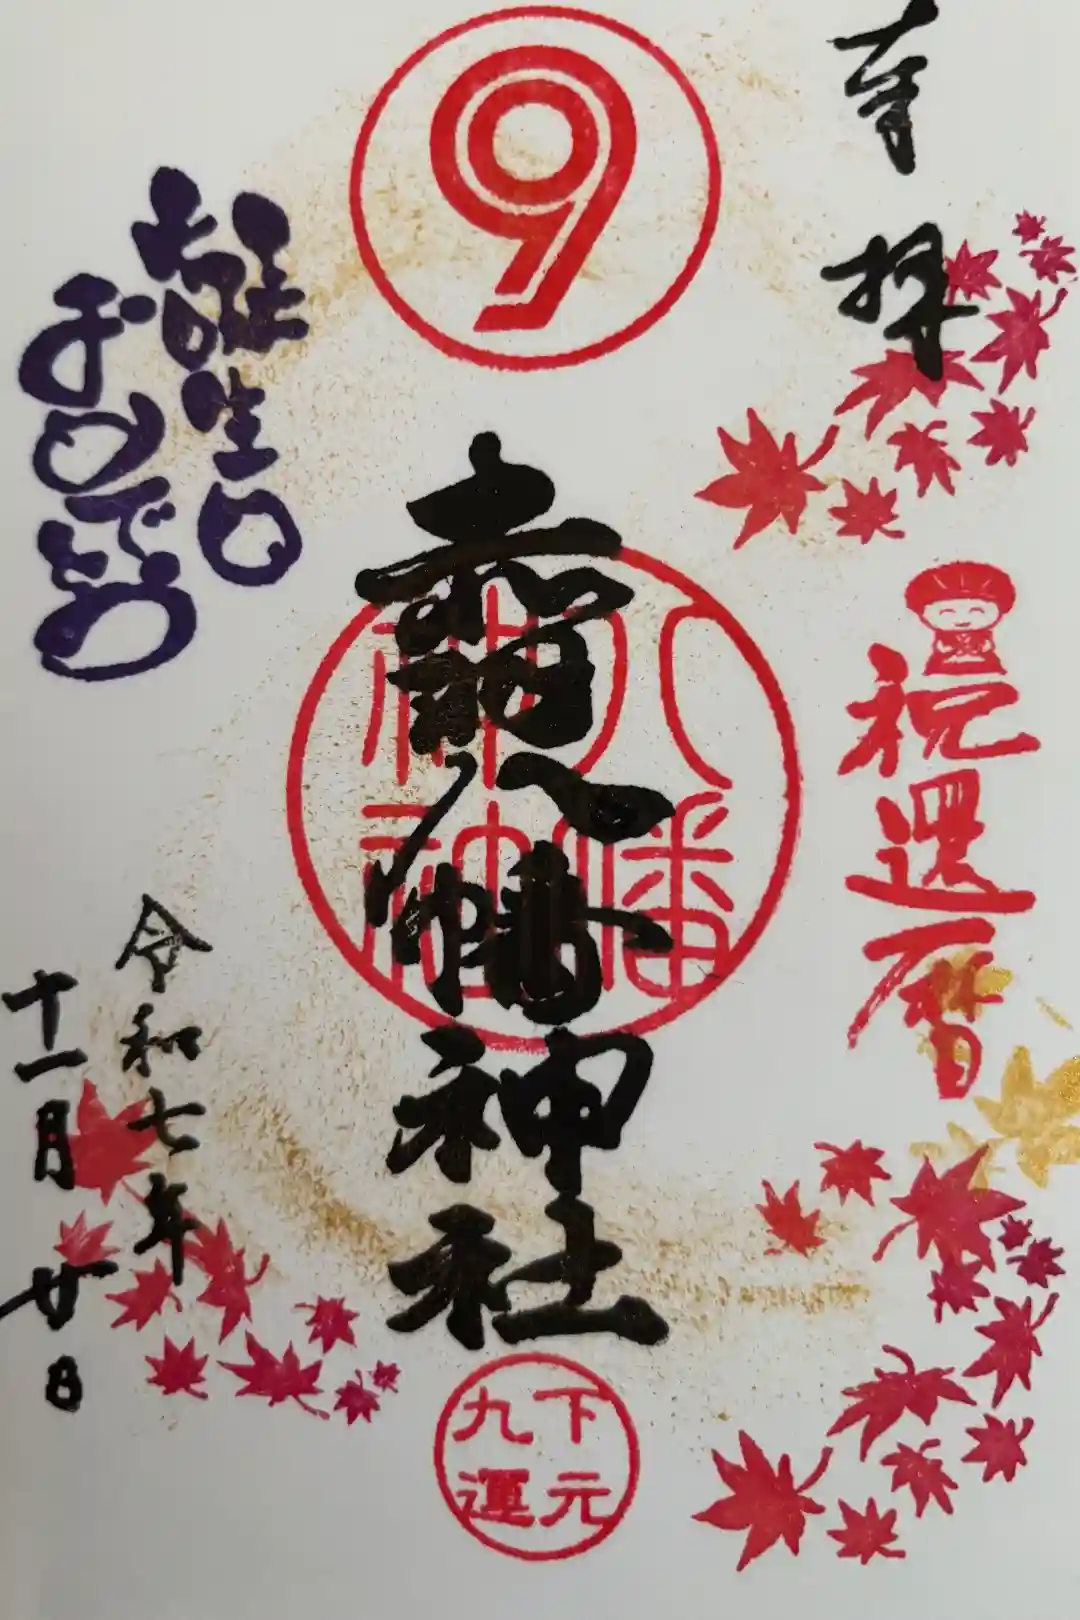 奉拝
祝還暦
9
八幡神社
八幡
神社
下元
九運
お誕生日
おめでとう
令和七年
十一月廿日